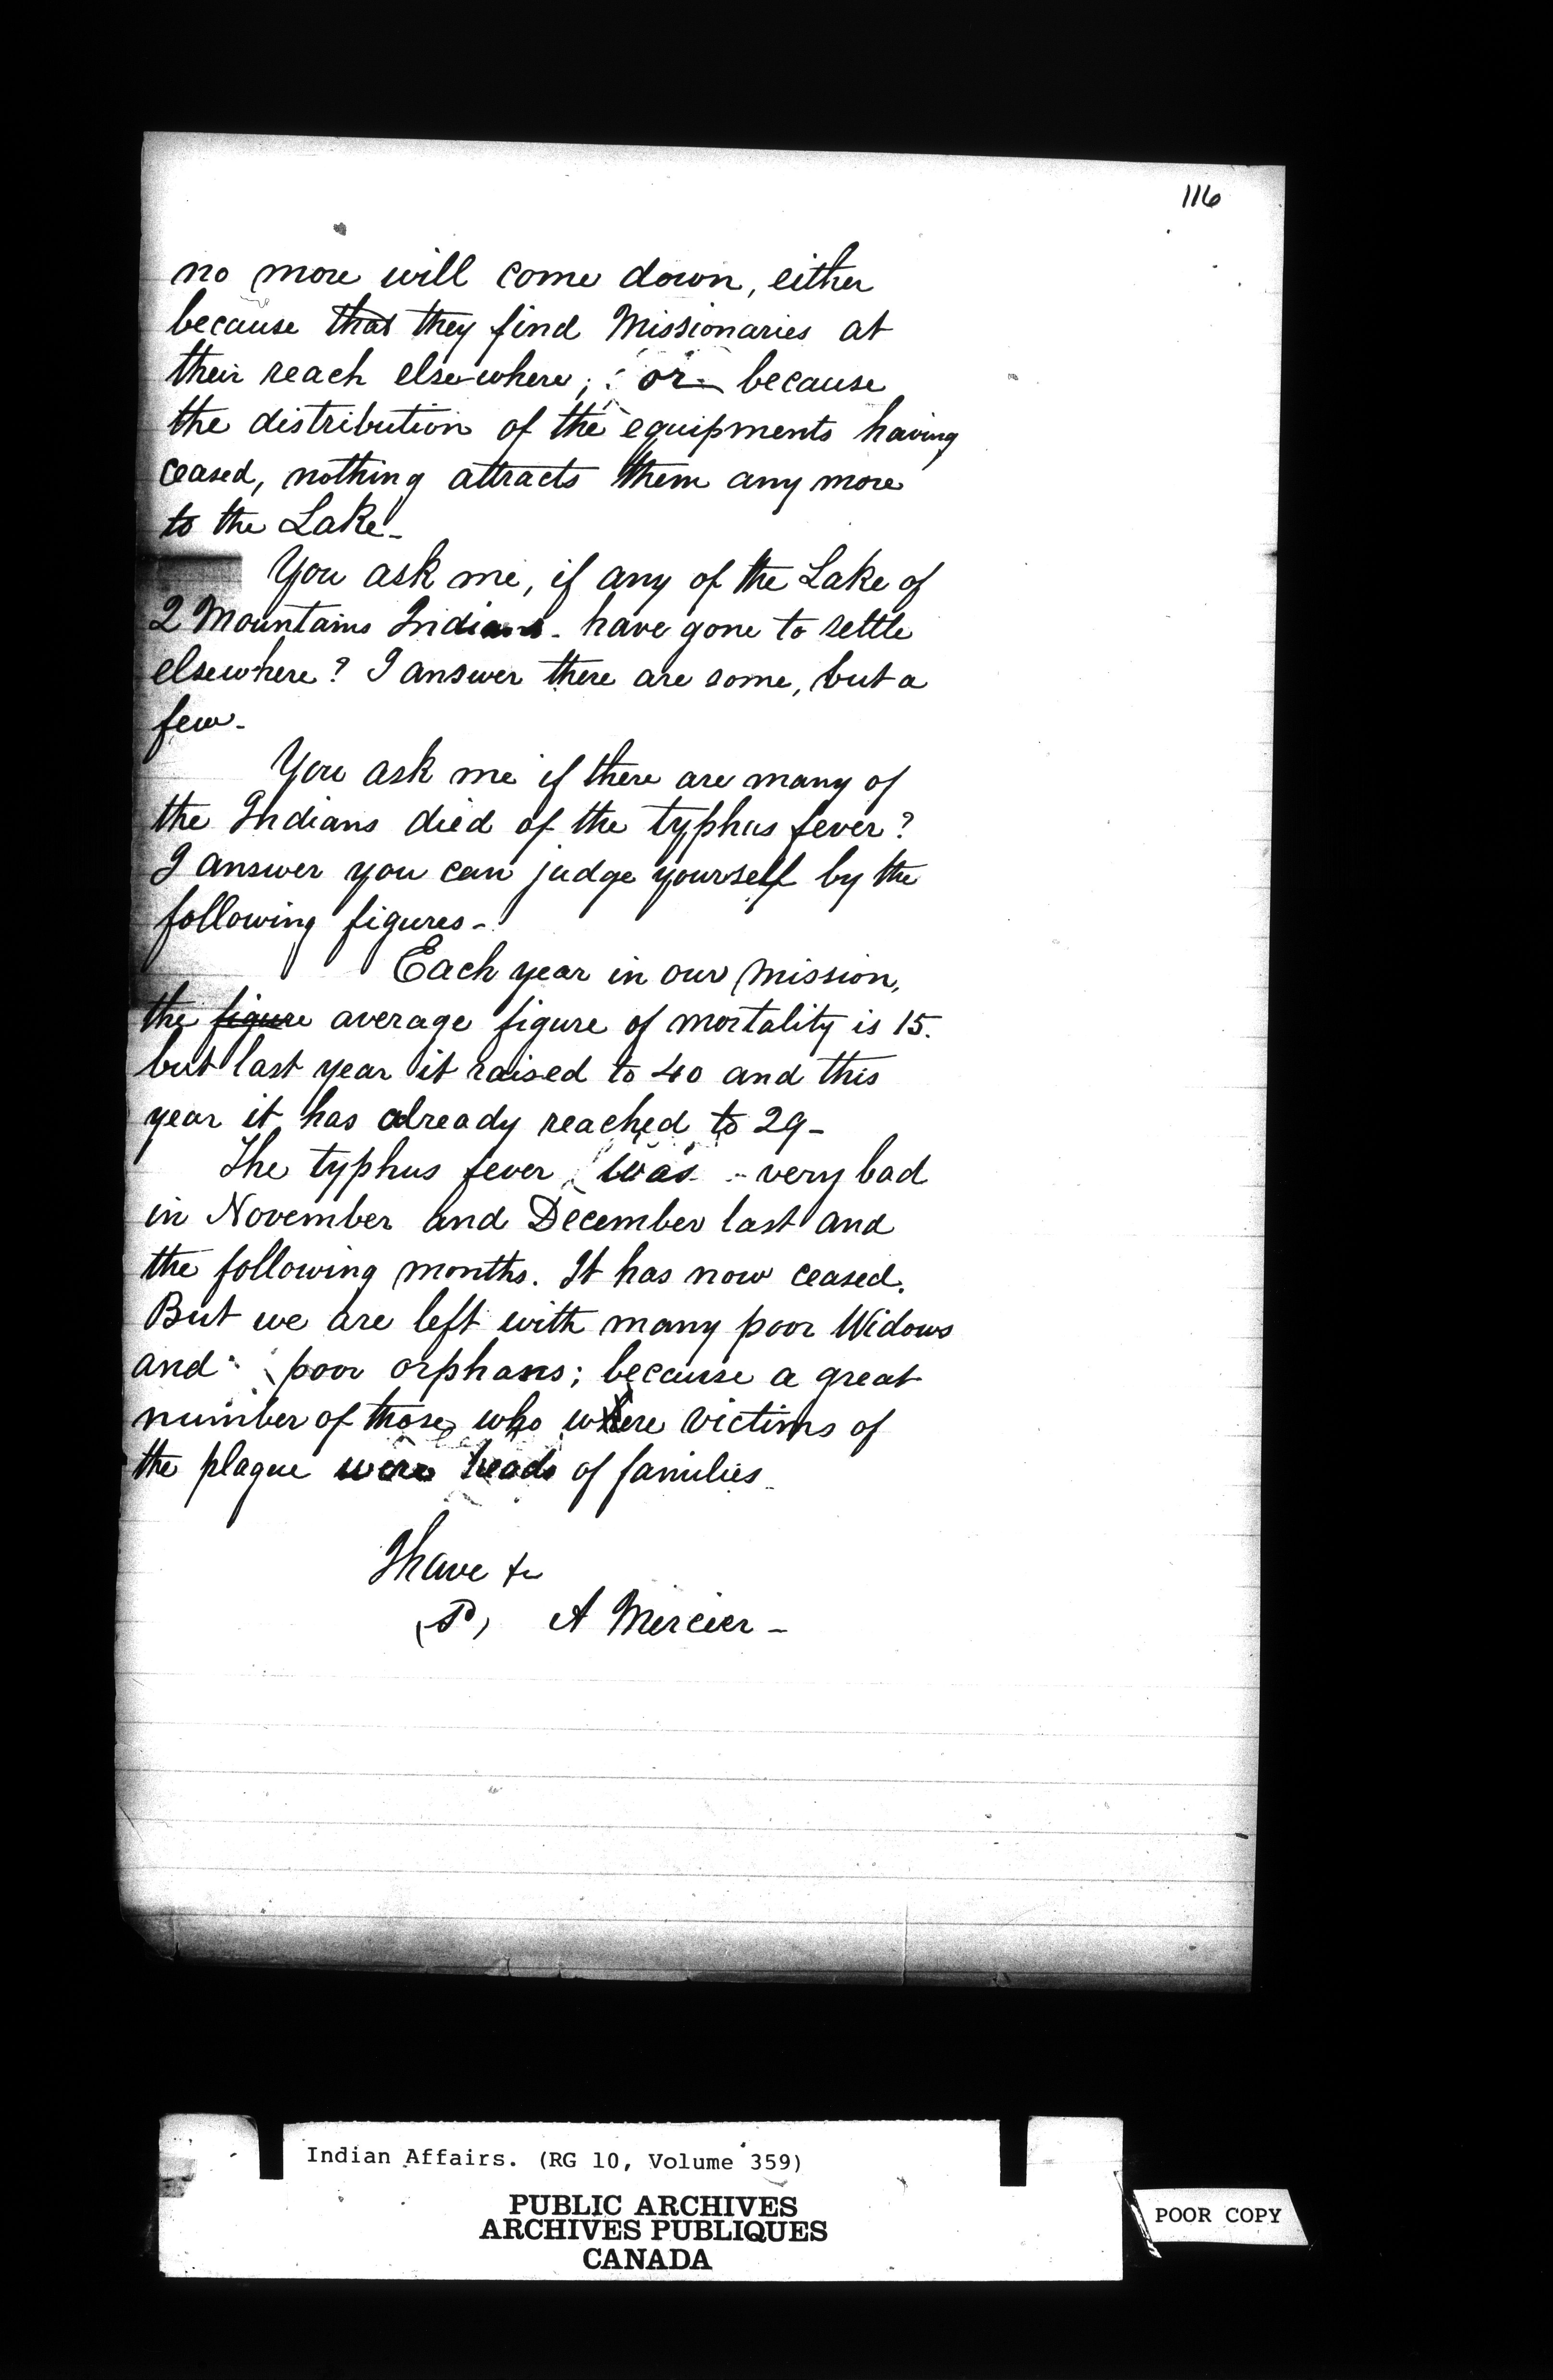 116
no more will come down, either
because that they find Missionaries at
their reach elsewhere; or because
the distribution of the equipments having
ceased, nothing attracts them any more
to the Lake_
You ask me, if any of the Lake of
2 Mountains Indians - have gone to settle
elsewhere? I answer there are some, but a
few -
You ask me if there are many of
the Indians died of the typhus fever?
I answer you can judge yourself by the
following figures -
Each year in our Mission,
the figure average figure of mortality is 15.
but last year it raised to 40 and this
year it has already reached to 29 -
The typhus fever was very bad
in November and December last and
the following months. It has now ceased.
But we are left with many poor Widows
and poor orphans; because a great
number of those who were victims of
the plague were heads of families
I have &c
A Mercier -
Indian Affairs. (RG 10, Volume 359)
PUBLIC ARCHIVES
ARCHIVES PUBLIQUES
CANADA
POOR COPY